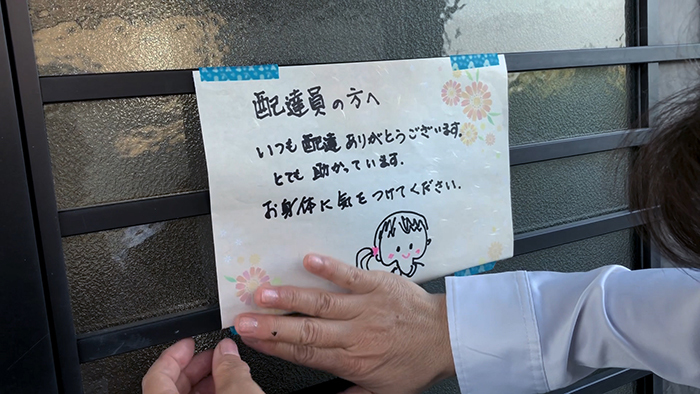 配達員の方へ
いつも配達ありがとうございます。
とても助かっています。
お身体に気をつけてください。